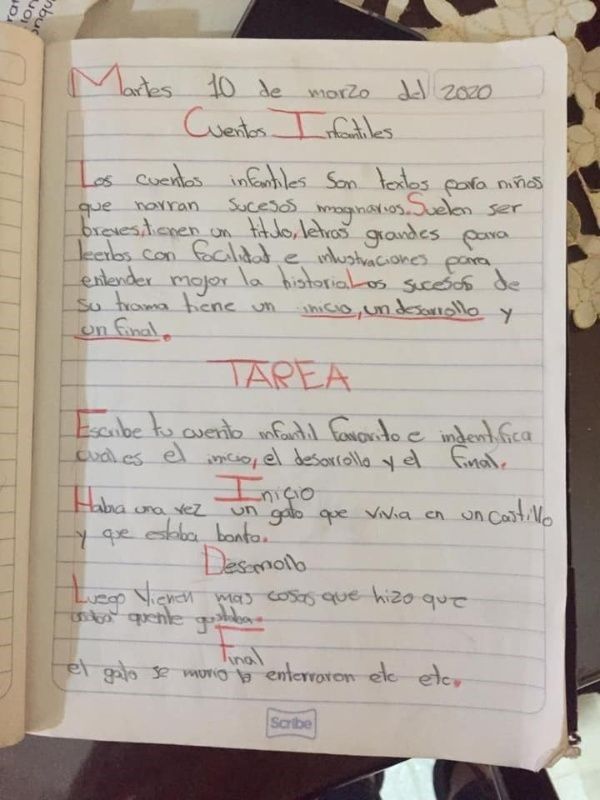 Martes 10 de marzo del 2020
Cuentos Infantiles
Los cuentos infantiles son textos para niños
que narran sucesos imaginarios. Suelen ser
breves, tienen un titulo, letras grandes para
leerlos con facilidad e inlustraciones para
entender mojor la historia Los sucesos de
su trama tiene un inicio, un desarrollo y
un final.
TAREA
Escribe tu cuento infantil favorito e indentifica
cual es el inicio, el desarrollo y el final.
Inicio
Habia una vez un gato que vivia en un castillo
y que estaba bonto.
Desarrollo
Luego vienen mas cosas que hizo que
gustaba.
Final
el gato se murio lo enterraron etc etc.
Scribe